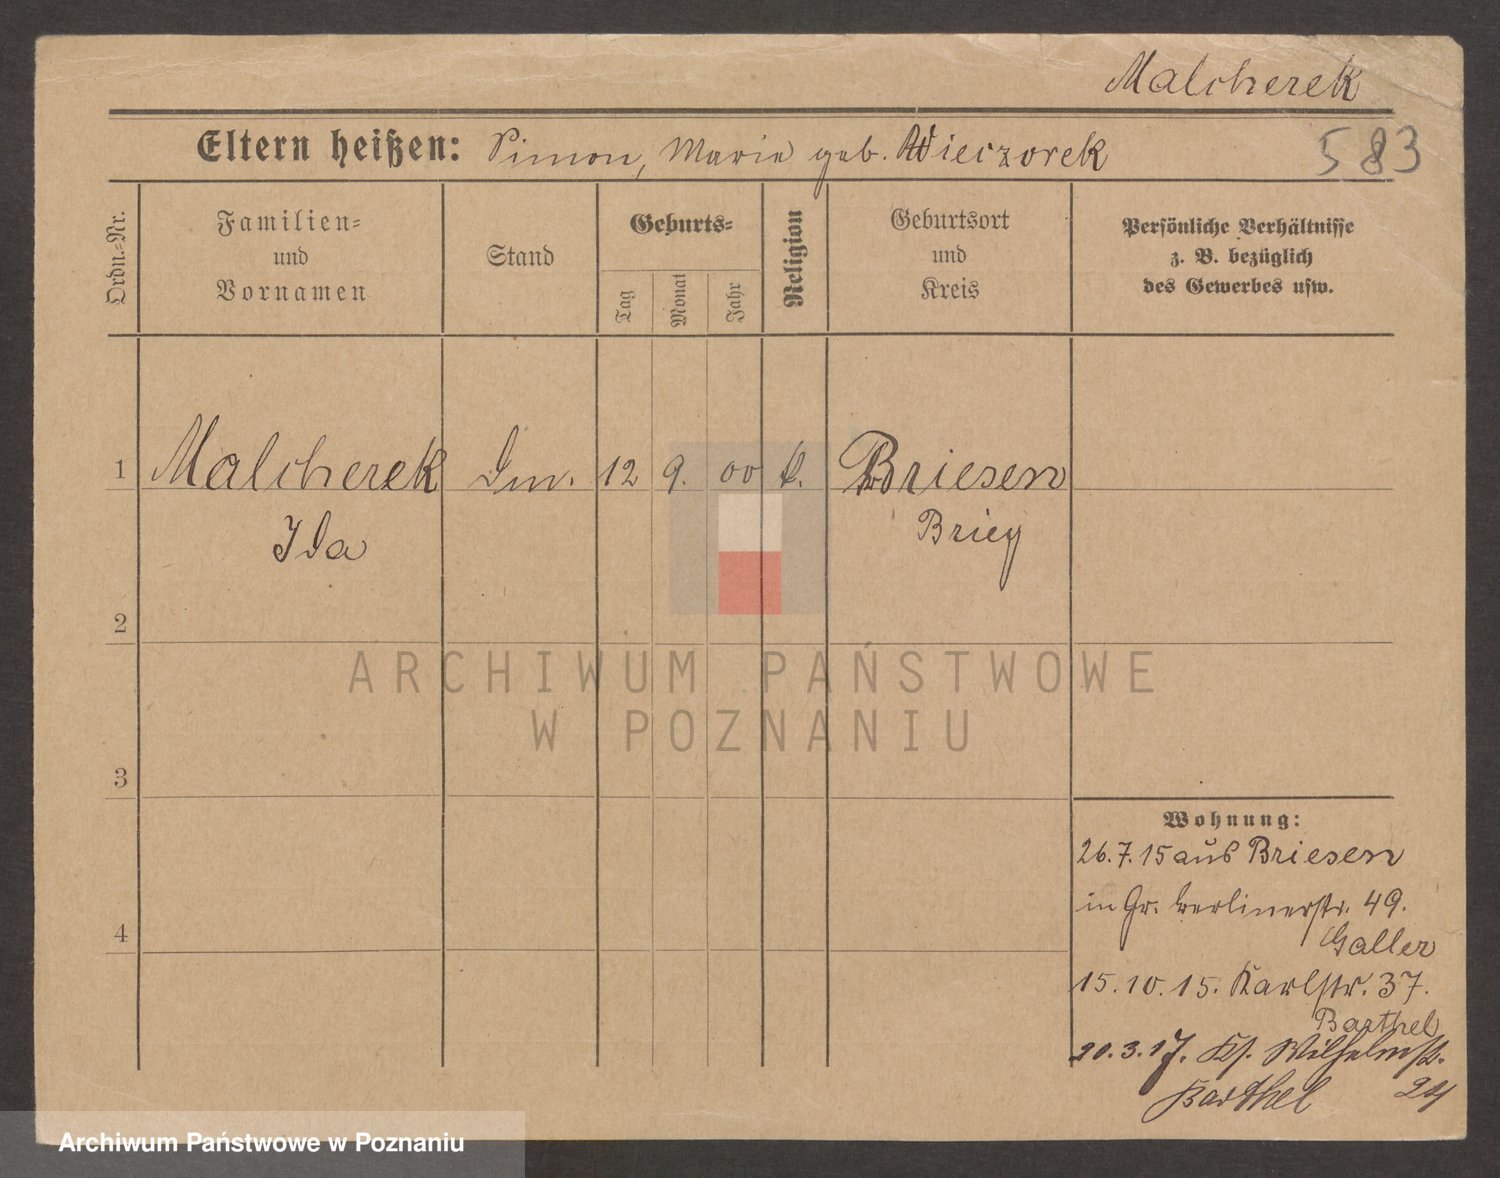 Malcherek
Eltern heißen: Simon, Marie geb. Wieczorek
583
Ordn.-Nr.
Familien-
und
Vornamen
Stand
Geburts-
Tag
Monat
Jahr
Religion
Geburtsort
und
Kreis
Persönliche Verhältnisse
z. B. bezüglich
des Gewerbes usw.
1 Malcherek 12 9. 00 k. Briesen
Ida Brieg
2
3
4
ARCHIWUM PAŃSTWOWE
W POZNANIU
Wohnung:
26.7.15 aus Briesen
in Gr. Berlinerstr. 49.
Galler
15.10.15. Karlstr. 37.
Barthel
20.3.17. Wilhelmstr.
Barthel 24
Archiwum Państwowe w Poznaniu